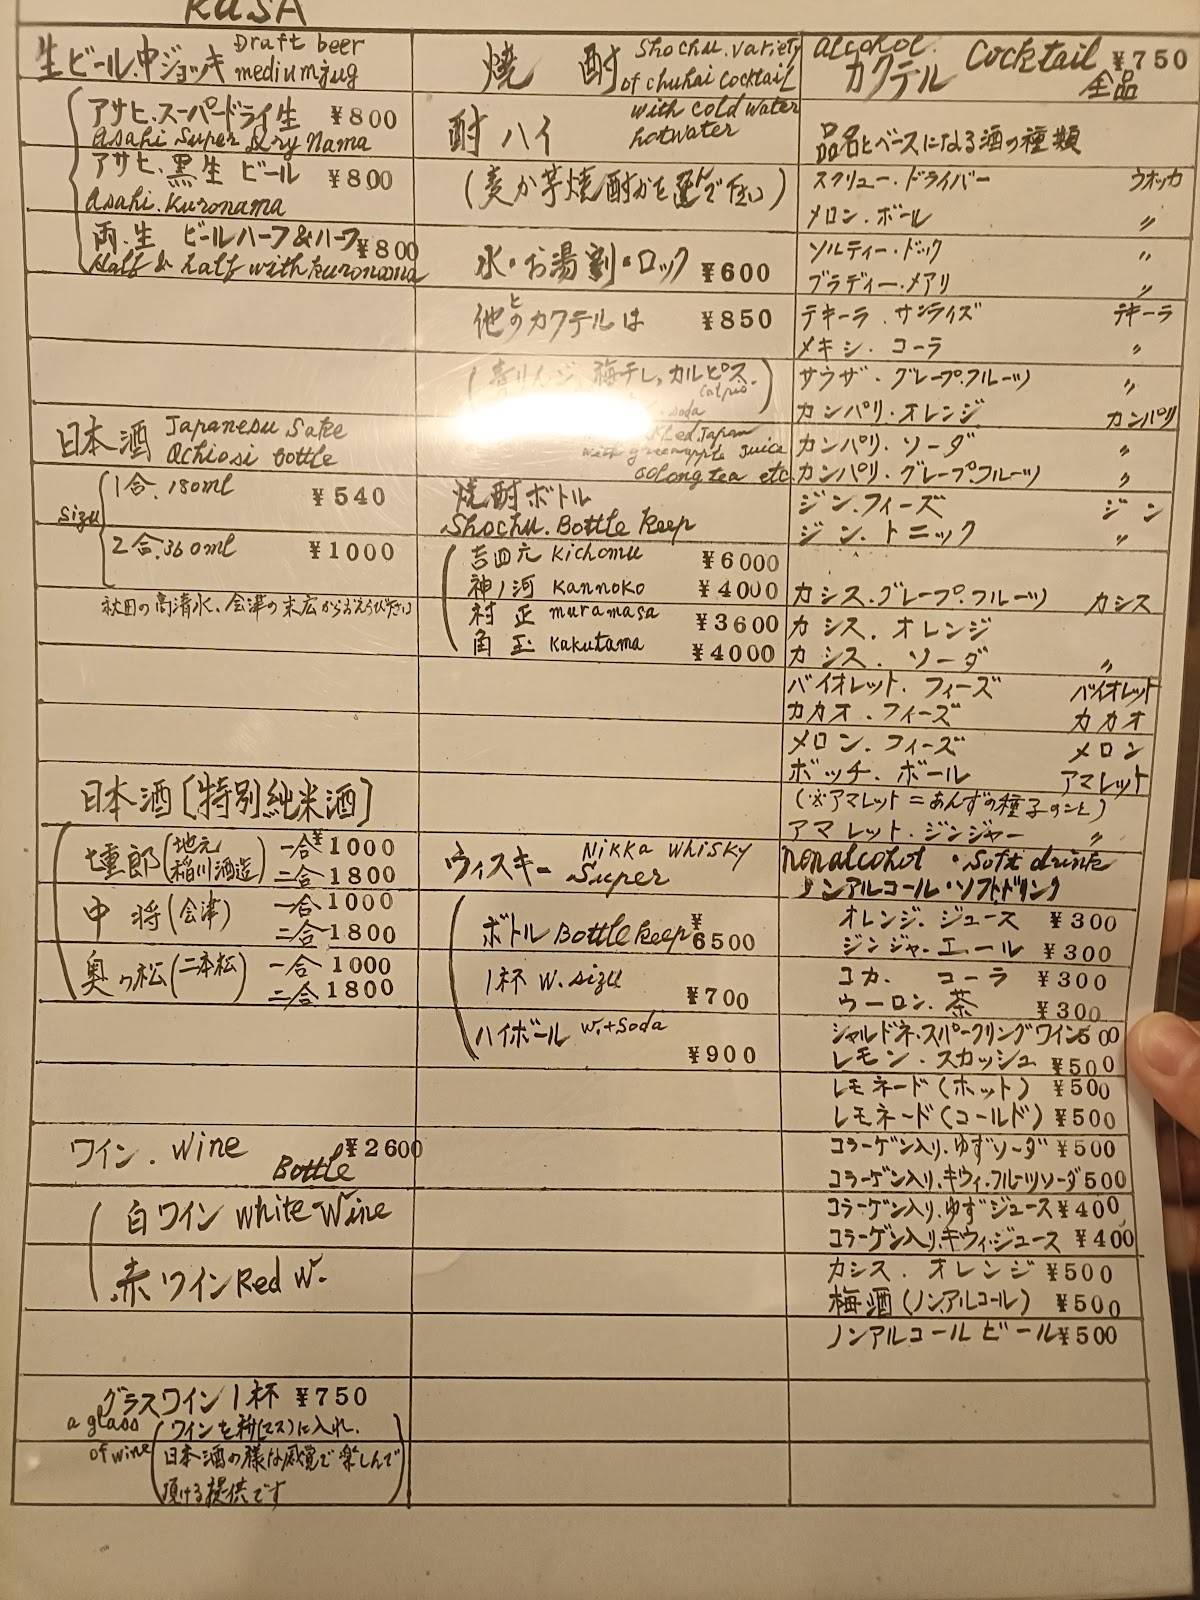 KUSA
生ビール.中ジョッキ Draft beer mediumjug
アサヒ.スーパードライ生 ¥800
Asahi Super Dry Nama
アサヒ.黒生 ビール ¥800
Asahi.Kuronama
両.生 ビールハーフ&ハーフ ¥800
Half & Half with Kuronama
日本酒 Japanesu Sake
Qchiosi bottle
sizu
1合.180ml ¥540
2合.360ml ¥1000
秋田の高清水、会津の末広からおえらび下さい
日本酒[特別純米酒]
七重郎(地元 稲川酒造) 一合¥1000
二合1800
中 将(会津) 一合1000
二合1800
奥の松(二本松) 一合1000
二合1800
ワイン. Wine ¥2600
Bottle
白ワイン White Wine
赤ワイン Red W.
グラスワイン1杯 ¥750
a glass of wine
(ワインを枡(マス)に入れ.
日本酒の様な感覚で楽しんで
頂ける提供です)
焼 酎 Shochu.variety
of chuhai cocktail
with cold water
hotwater
酎ハイ
(麦か芋焼酎かを選んで下さい)
水・お湯割・ロック ¥600
他とのカクテルは ¥850
(青りんご、梅干し,カルピス
calpis.
soda
Japan
with green apple juice
oolong tea etc.
焼酎ボトル
Shochu.Bottle keep
吉四六 Kichomu ¥6000
神ノ河 Kannoko ¥4000
村 正 muramasa ¥3600
角 玉 Kakutama ¥4000
ウィスキー Nikka Whisky
Super
ボトル Bottle keep ¥6500
1杯 W.sizu ¥700
ハイボール W.+Soda ¥900
alcohol. カクテル Cocktail ¥750
全品
品名とベースになる酒の種類
スクリュー.ドライバー ウオッカ
メロン.ボール 〃
ソルティー.ドック 〃
ブラディー.メアリ 〃
テキーラ.サンライズ テキーラ
メキシ.コーラ 〃
サウザ.グレープ.フルーツ 〃
カンパリ.オレンジ カンパリ
カンパリ.ソーダ 〃
カンパリ.グレープ.フルーツ 〃
ジン.フィーズ ジン
ジン.トニック 〃
カシス.グレープ.フルーツ カシス
カシス.オレンジ
カシス.ソーダ 〃
バイオレット.フィーズ バイオレット
カカオ.フィーズ カカオ
メロン.フィーズ メロン
ボッチ.ボール アマレット
(※アマレット=あんずの種子のこと)
アマレット.ジンジャー 〃
nonalcohol・soft drink
ノンアルコール・ソフトドリンク
オレンジ.ジュース ¥300
ジンジャ.エール ¥300
コカ. コーラ ¥300
ウーロン.茶 ¥300
シャルドネ.スパークリングワイン500
レモン.スカッシュ ¥500
レモネード(ホット) ¥500
レモネード(コールド) ¥500
コラーゲン入り.ゆずソーダ ¥500
コラーゲン入り.キウィ.フルーツソーダ500
コラーゲン入り.ゆずジュース¥400
コラーゲン入り.キウィ.ジュース ¥400
カシス.オレンジ ¥500
梅酒(ノンアルコール) ¥500
ノンアルコールビール ¥500